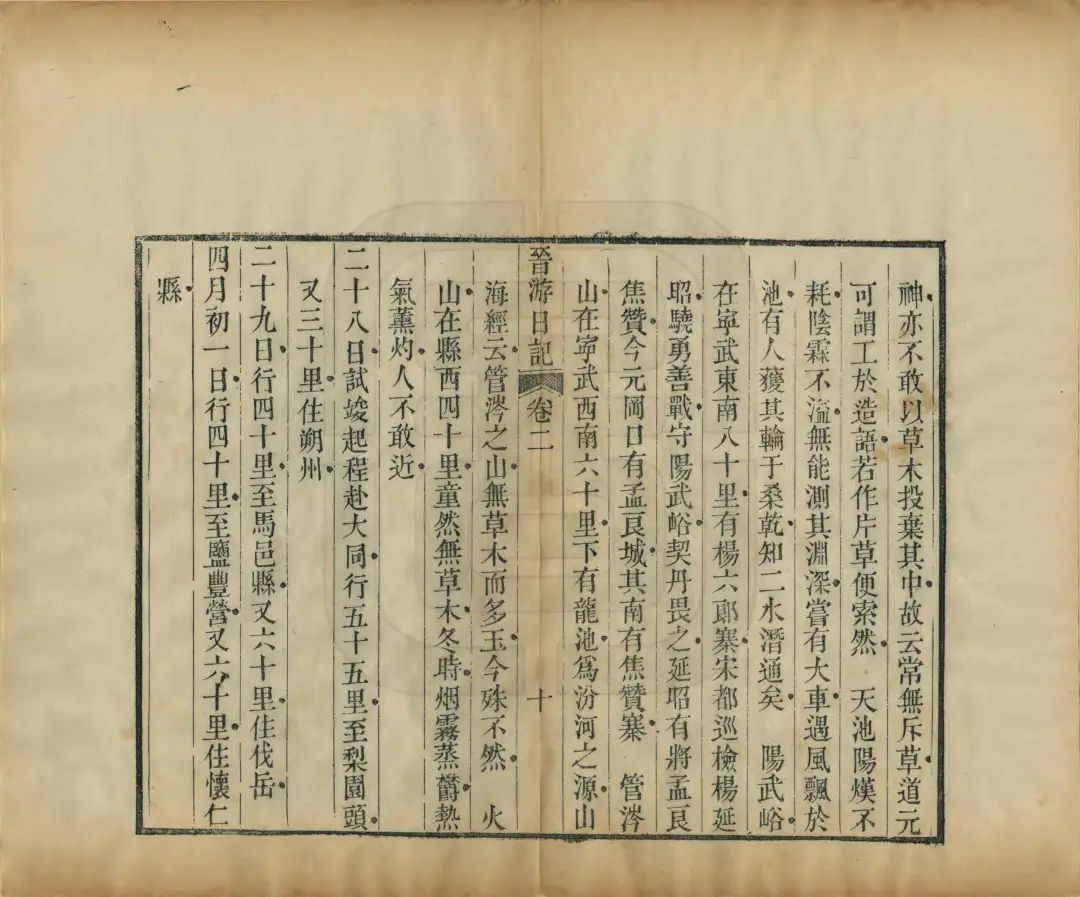 神亦不敢以草木投棄其中故云常無斥草道元
可謂工於造語若作片草便索然　天池陽熯不
耗陰霖不溢無能測其淵深嘗有大車遇風飄於
池有人獲其輪于桑乾知二水潛通矣　陽武峪
在寧武東南八十里有楊六郎寨宋都巡檢楊延
昭驍勇善戰守陽武峪契丹畏之延昭有將孟良
焦贊今元岡口有孟良城其南有焦贊寨　管涔
山在寧武西南六十里下有龍池爲汾河之源山
晉游日記　卷二　十
海經云管涔之山無草木而多玉今殊不然　火
山在縣西四十里童然無草木冬時烟霧蒸欝熱
氣薰灼人不敢近
二十八日試竣起程赴大同行五十五里至梨園頭
又三十里住朔州
二十九日行四十里至馬邑縣又六十里住伐岳
四月初一日行四十里至鹽豐營又六十里住懷仁
縣